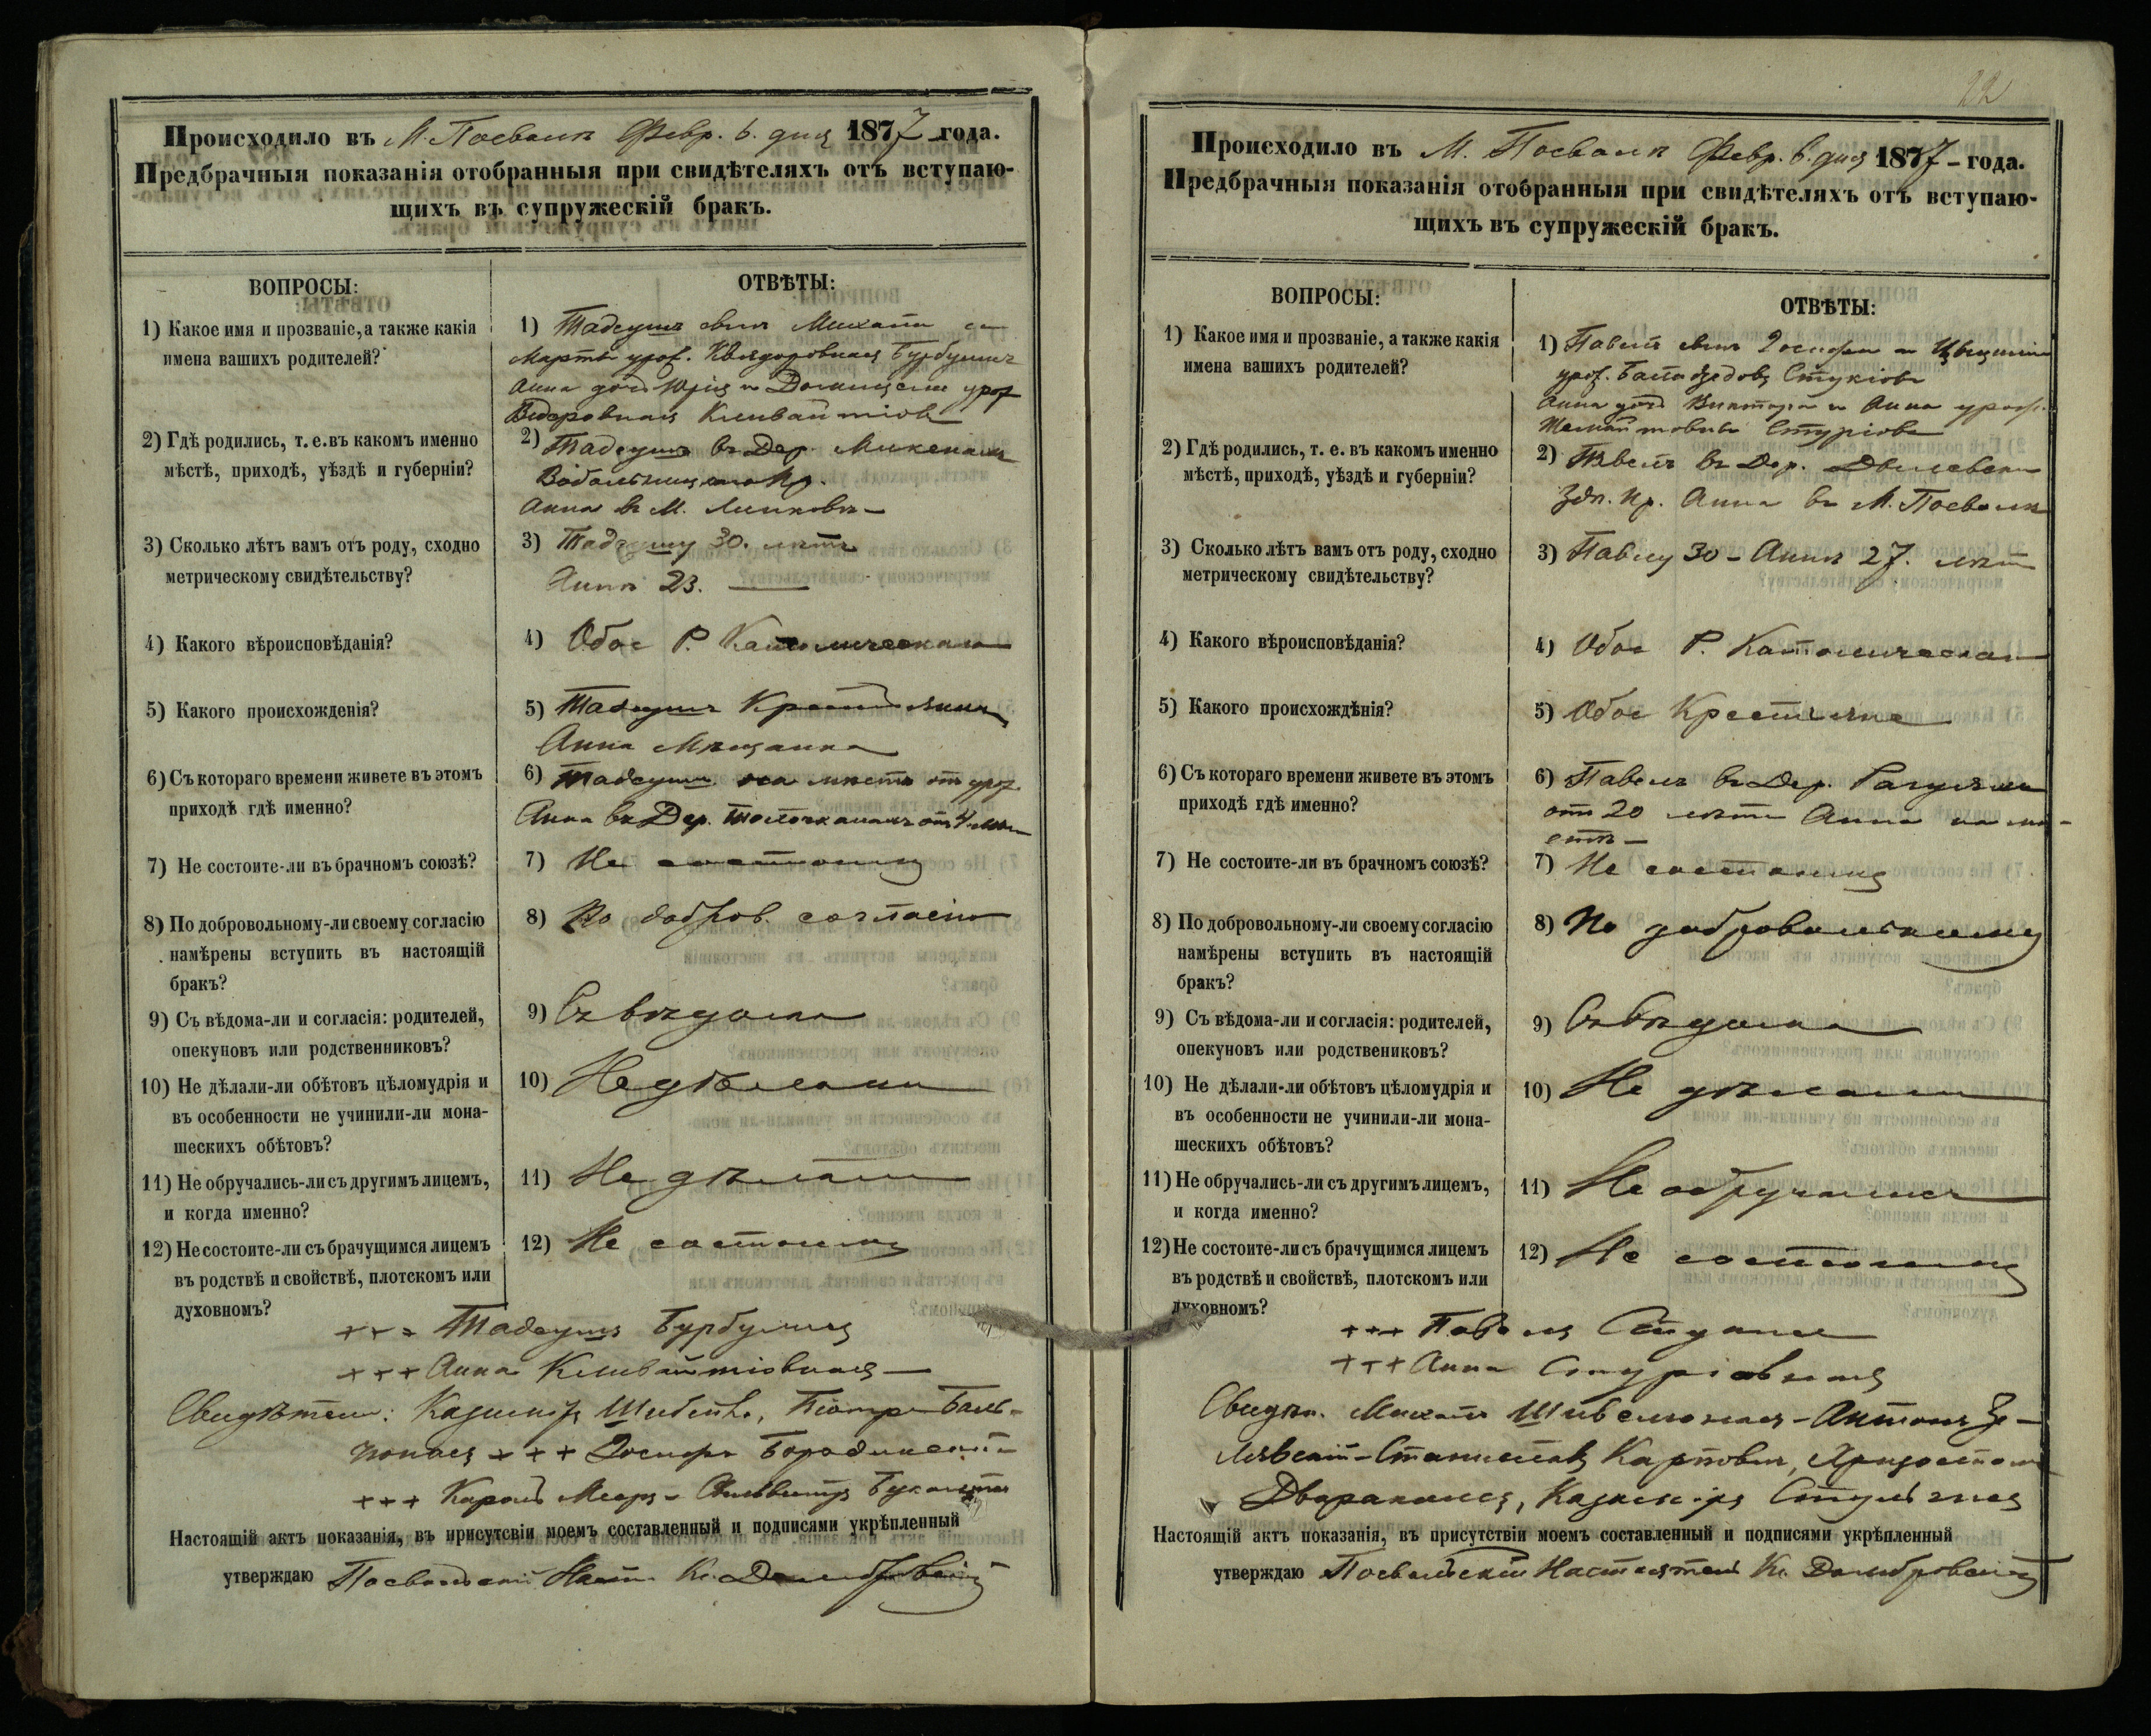 Происходило въ М. Посволѣ Февр. 6. дня 1877 года.
Предбрачныя показанія отобранныя при свидѣтеляхъ отъ вступаю-
щихъ въ супружескій бракъ.
ВОПРОСЫ:
ОТВѢТЫ:
1) Какое имя и прозваніе, а также какія
имена вашихъ родителей?
1) Тадеушъ сынъ Михаила и
Марты урож. Бурбулисъ
Анна дочь Юрія и Доминцели урож
2) Гдѣ родились, т. е. въ какомъ именно
мѣстѣ, приходѣ, уѣздѣ и губерніи?
2) Тадеушъ въ Дер.
Вобольницкаго Пр.
Анна въ М. Линковѣ
3) Сколько лѣтъ вамъ отъ роду, сходно
метрическому свидѣтельству?
3) Тадеушу 30. лѣтъ
Аннѣ 23. —
4) Какого вѣроисповѣданія?
4) Обое Р. Католическаго
5) Какого происхожденія?
5) Тадеушъ Крестьянинъ
Анна Мѣщанка
6) Съ котораго времени живете въ этомъ
приходѣ гдѣ именно?
6) Тадеушъ на мѣстѣ от урож.
Анна въ Дер. от 4 лѣт
7) Не состоите-ли въ брачномъ союзѣ?
7) Не состоимъ
8) По добровольному-ли своему согласію
намѣрены вступить въ настоящій
бракъ?
8) По добров. согласію
9) Съ вѣдома-ли и согласія: родителей,
опекуновъ или родственниковъ?
9) Съ вѣдома
10) Не дѣлали-ли обѣтовъ цѣломудрія и
въ особенности не учинили-ли мона-
шескихъ обѣтовъ?
10) Не дѣлали
11) Не обручались-ли съ другимъ лицемъ,
и когда именно?
11) Не дѣлали
12) Не состоите-ли съ брачущимся лицемъ
въ родствѣ и свойствѣ, плотскомъ или
духовномъ?
12) Не состоимъ
+++ Тадеушъ Бурбулисъ
+++ Анна Кливайтіовная
Свидѣтели: Казимиръ Петръ Баль-
+++ Іосифъ
+++ Кароль
Настоящій актъ показанія, въ присутсвіи моемъ составленный и подписями укрѣпленный
утверждаю Посвольскій Наст. Кс. Домбровскій
22
Происходило въ М. Посволѣ Февр. 6. дня 1877 – года.
Предбрачныя показанія отобранныя при свидѣтеляхъ отъ вступаю-
щихъ въ супружескій бракъ.
ВОПРОСЫ:
ОТВѢТЫ:
1) Какое имя и прозваніе, а также какія
имена вашихъ родителей?
1) Павелъ сынъ Іосифа и
урож.
Анна дочь Виктора и Анны урож.
2) Гдѣ родились, т. е. въ какомъ именно
мѣстѣ, приходѣ, уѣздѣ и губерніи?
2) Павелъ въ Дер.
Здѣ. Пр. Анна въ М. Посволѣ
3) Сколько лѣтъ вамъ отъ роду, сходно
метрическому свидѣтельству?
3) Павлу 30 – Аннѣ 27. лѣтъ
4) Какого вѣроисповѣданія?
4) Обое Р. Католическаго
5) Какого происхождѣнія?
5) Обое Крестьяне
6) Съ котораго времени живете въ этомъ
приходѣ гдѣ именно?
6) Павелъ въ Дер.
отъ 20 лѣтъ Анна на мѣ-
стѣ —
7) Не состоите-ли въ брачномъ союзѣ?
7) Не состоимъ
8) По добровольному-ли своему согласію
намѣрены вступить въ настоящій
бракъ?
8) По добровольному
9) Съ вѣдома-ли и согласія: родителей,
опекуновъ или родствениковъ?
9) Съ вѣдома
10) Не дѣлали-ли обѣтовъ цѣломудрія и
въ особенности не учинили-ли мона-
шескихъ обѣтовъ?
10) Не дѣлали
11) Не обручались-ли съ другимъ лицемъ,
и когда именно?
11) Не обручались
12) Не состоите-ли съ брачущимся лицемъ
въ родствѣ и свойствѣ, плотскомъ или
духовномъ?
12) Не состоимъ
+++ Павелъ
+++ Анна
Свидѣт. Михаилъ – Антонъ
Станиславъ Карповичъ,
Казимиръ
Настоящій актъ показанія, въ присутствіи моемъ составленный и подписями укрѣпленный
утверждаю Посвольскій Настоятель Кс. Домбровскій